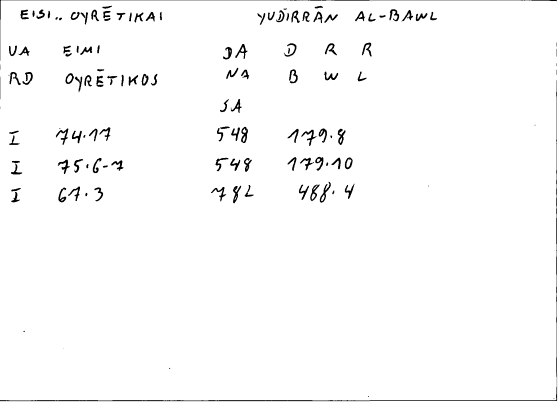 EISI.. OYRĒTIKAI YUDIRRĀN AL-BAWL
VA EIMI DA D R R
RD OYRĒTIKOS NA B W L
SA
I 74.17 548 179.8
I 75.6-7 548 179.10
I 67.3 782 488.4